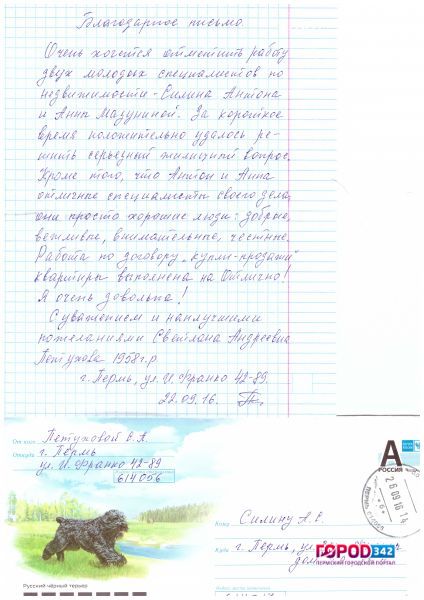 Благодарное письмо
Очень хочется отметить работу
двух молодых специалистов по
недвижимости - Силина Антона
и Анны Мазуниной. За короткое
время положительно удалось ре-
шить серьёзный жилищный вопрос.
Кроме того, что Антон и Анна
отличные специалисты своего дела,
они просто хорошие люди: добрые,
вежливые, внимательные, честные.
Работа по договору "купли-продажи"
квартиры выполнена на Отлично!
Я очень довольна!
С уважением и наилучшими
пожеланиями Светлана Андреевна
Петухова 1958г.р
г. Пермь, ул. И. Франко 42-89.
22.09.16.
От кого Петуховой С.А.
Откуда г. Пермь
ул. И. Франко 42-89
614056
А
РОССИЯ
26 09 16 14
Кому Силину А. С.
Куда г. Пермь,
ГОРОД 342
ПЕРМСКИЙ ГОРОДСКОЙ ПОРТАЛ
Русский чёрный терьер